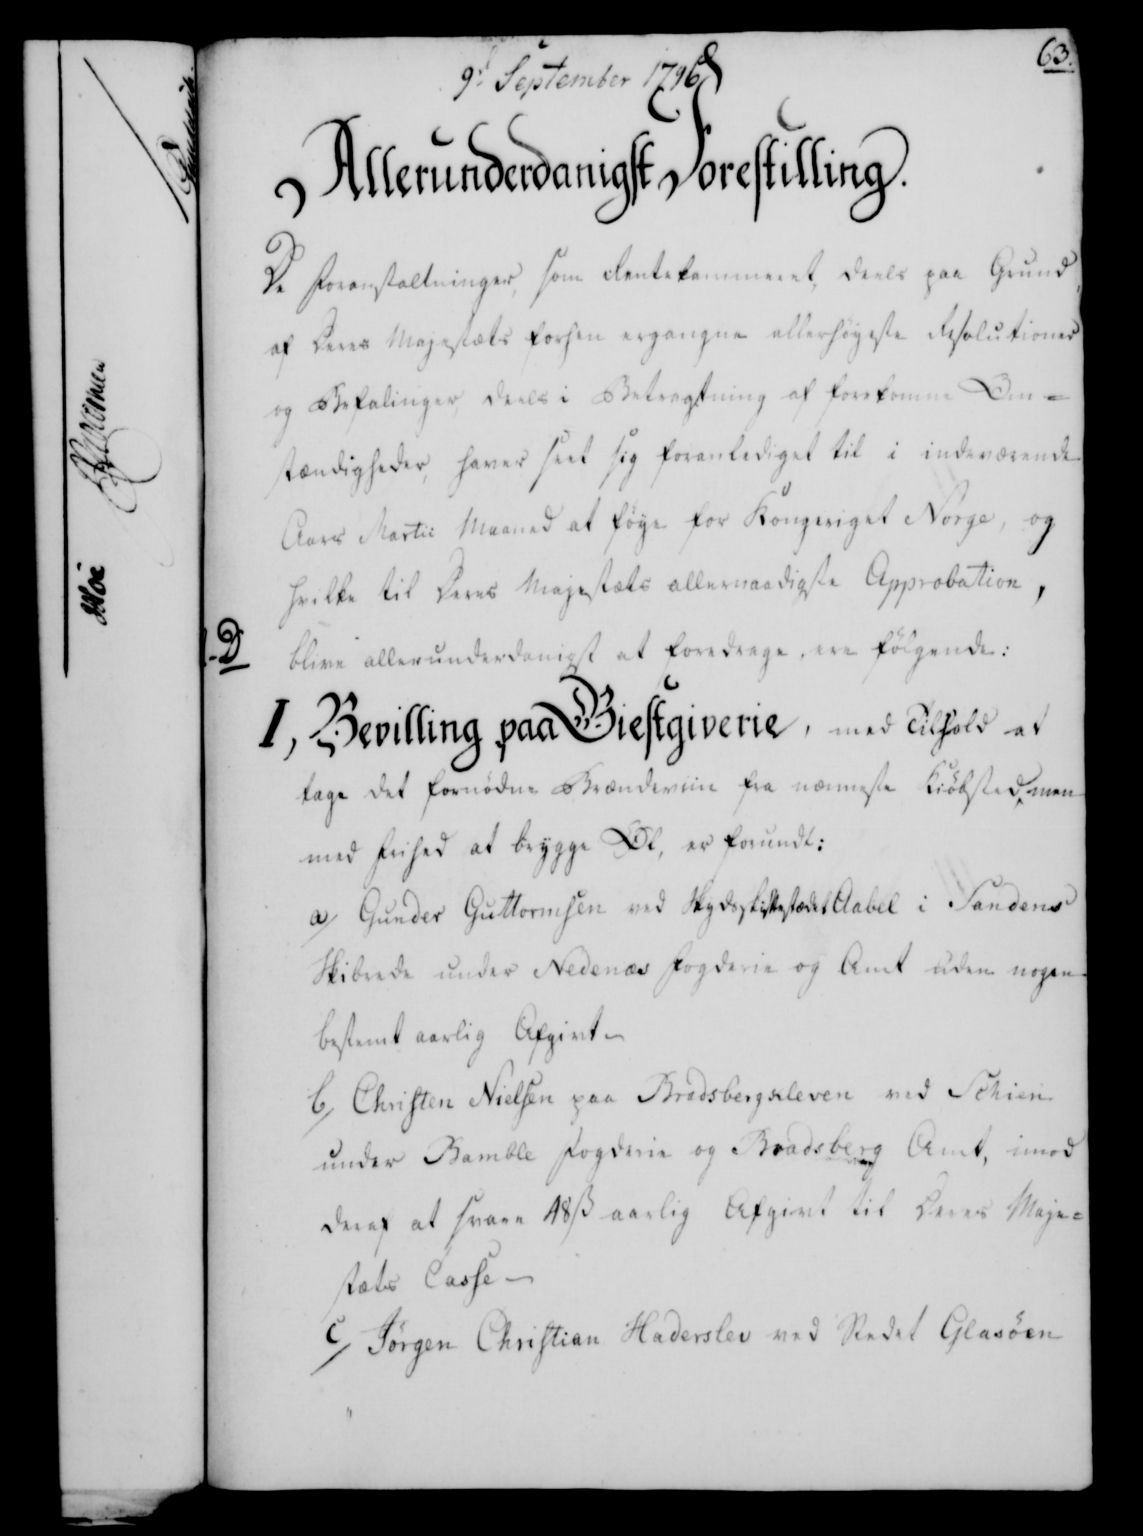 63.
9d September 1796
Allerunderdanigst Forestilling.
De Foranstaltninger, som Rentekammeret, deels paa Grund
af Deres Majestæts forhen ergangne allerhøyeste Resolutioner
og Befalinger, deels i Betragtning af forekomne Om-
stændigheder, haver seet sig foranlediget til i indeværende
Aars Martii Maaned at føye for Kongeriget Norge, og
hvilke til Deres Majestæts allernaadigste Approbation,
blive allerunderdanigst at foredrage, ere følgende:
I, Bevilling paa Giestgiverie, med Tilhold at
tage det fornødne Brændeviin fra nærmeste Kiøbsted, men
med Frihed at brygge Øl, er forundt:
a/ Gunder Guttormsen ved Skydsskiftestædet Aabel i Sandens
Skibrede under Nedenæs Fogderie og Amt uden nogen
bestemt aarlig Afgivt
b/ Christen Nielsen paa Bradsbergkleven ved Schien
under Bamble Fogderie og Bradsberg Amt, imod
deraf at svare 48 ß aarlig Afgivt til Deres Maje-
stæts Casse
c/ Jørgen Christian Haderslev ved Stedet Glasøen